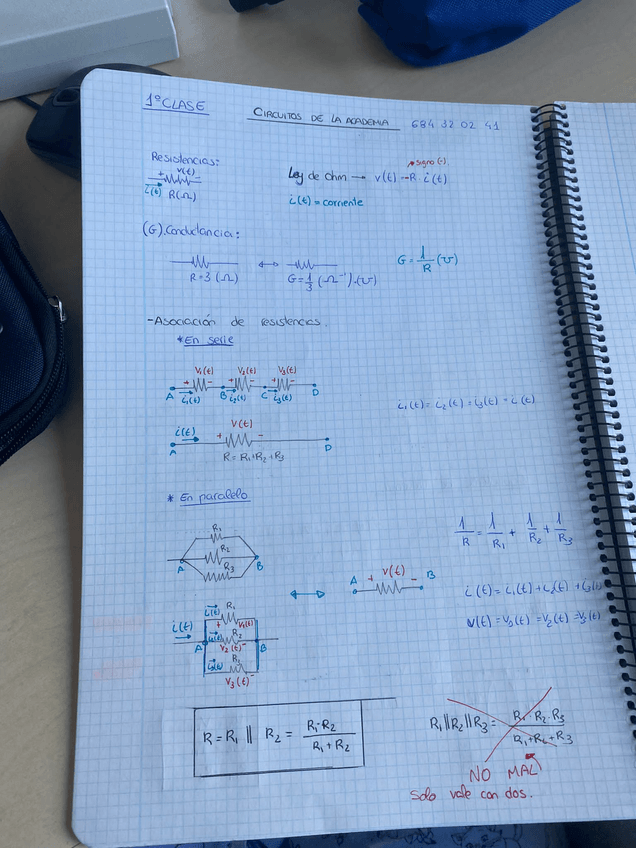 1º CLASE
CIRCUITOS DE LA ACADEMIA 684 32 02 41
Resistencias:
v(t)
+ -
i(t) R(Ω)
signo (-)
Ley de Ohm → v(t) = R · i(t)
i(t) = corriente
(G). Conductancia:
R=3 (Ω) ↔ G=1/3 (Ω⁻¹).(℧)
G = 1/R (℧)
-Asociación de resistencias.
* En serie
V₁(t) V₂(t) V₃(t)
+ - + - + -
A B C D
i₁(t) i₂(t) i₃(t)
i₁(t) = i₂(t) = i₃(t) = i(t)
i(t) V(t)
+ -
A D
R = R₁+R₂+R₃
* En paralelo
R₁
R₂
R₃
A B
1/R = 1/R₁ + 1/R₂ + 1/R₃
↔ A + v(t) - B
i(t) = i₁(t) + i₂(t) + i₃(t)
v(t) = V₁(t) = V₂(t) = V₃(t)
i(t) A B
i₁(t) R₁
+ V₁(t)
i₂(t) R₂
V₂(t) -
i₃(t) R₃
V₃(t) -
R = R₁ || R₂ = R₁·R₂ / R₁+R₂
R₁||R₂||R₃ = R₁·R₂·R₃ / R₁+R₂+R₃
NO MAL
Solo vale con dos.